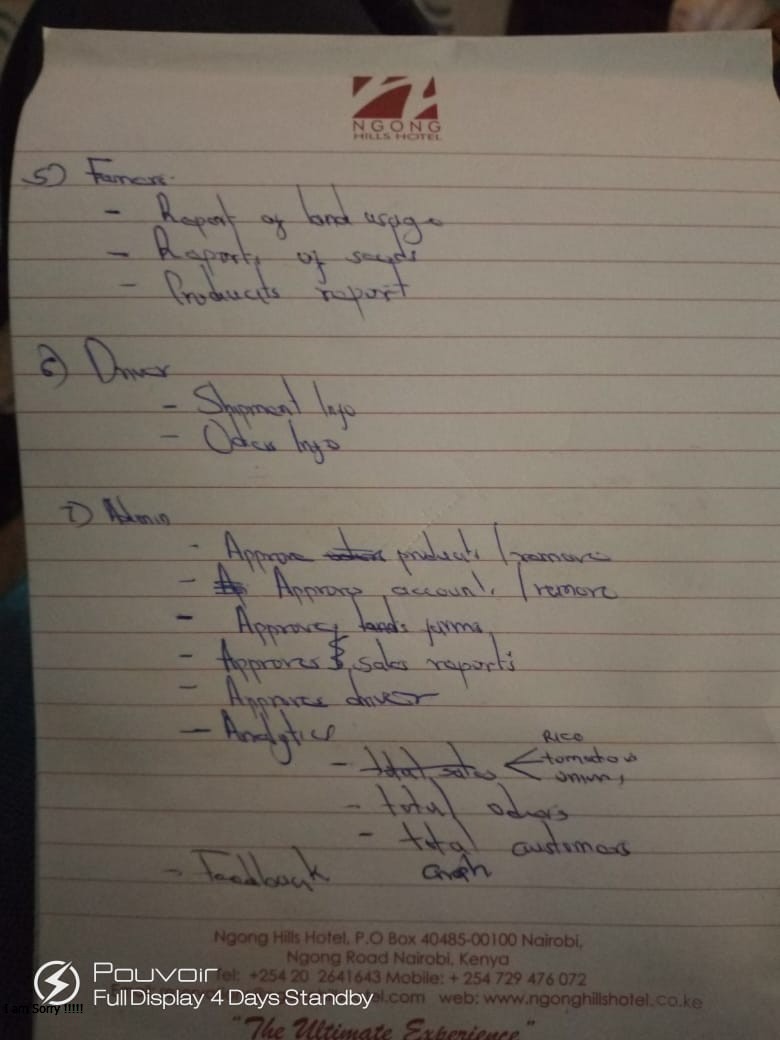 NGONG
HILLS HOTEL
5) Famers.
- Report of land usage
- Reports of seeds
- Products report
6) Driver
- Shipment Info
- Oders Info
7) Admin
- Approve products /remove
- Approve account. /remove
- Approves lands farms
- Approves $ sales reports
- Approves driver
- Analytics
Rice
- total sales < tomatoes
onions
- total oders
- total customers
- Feedback graph
Ngong Hills Hotel, P.O Box 40485-00100 Nairobi,
Ngong Road Nairobi, Kenya
Tel: +254 20 2641643 Mobile: + 254 729 476 072
el.com web: www.ngonghillshotel.co.ke
"The Ultimate Experience"
Pouvoir
Full Display 4 Days Standby
I am Sorry !!!!!